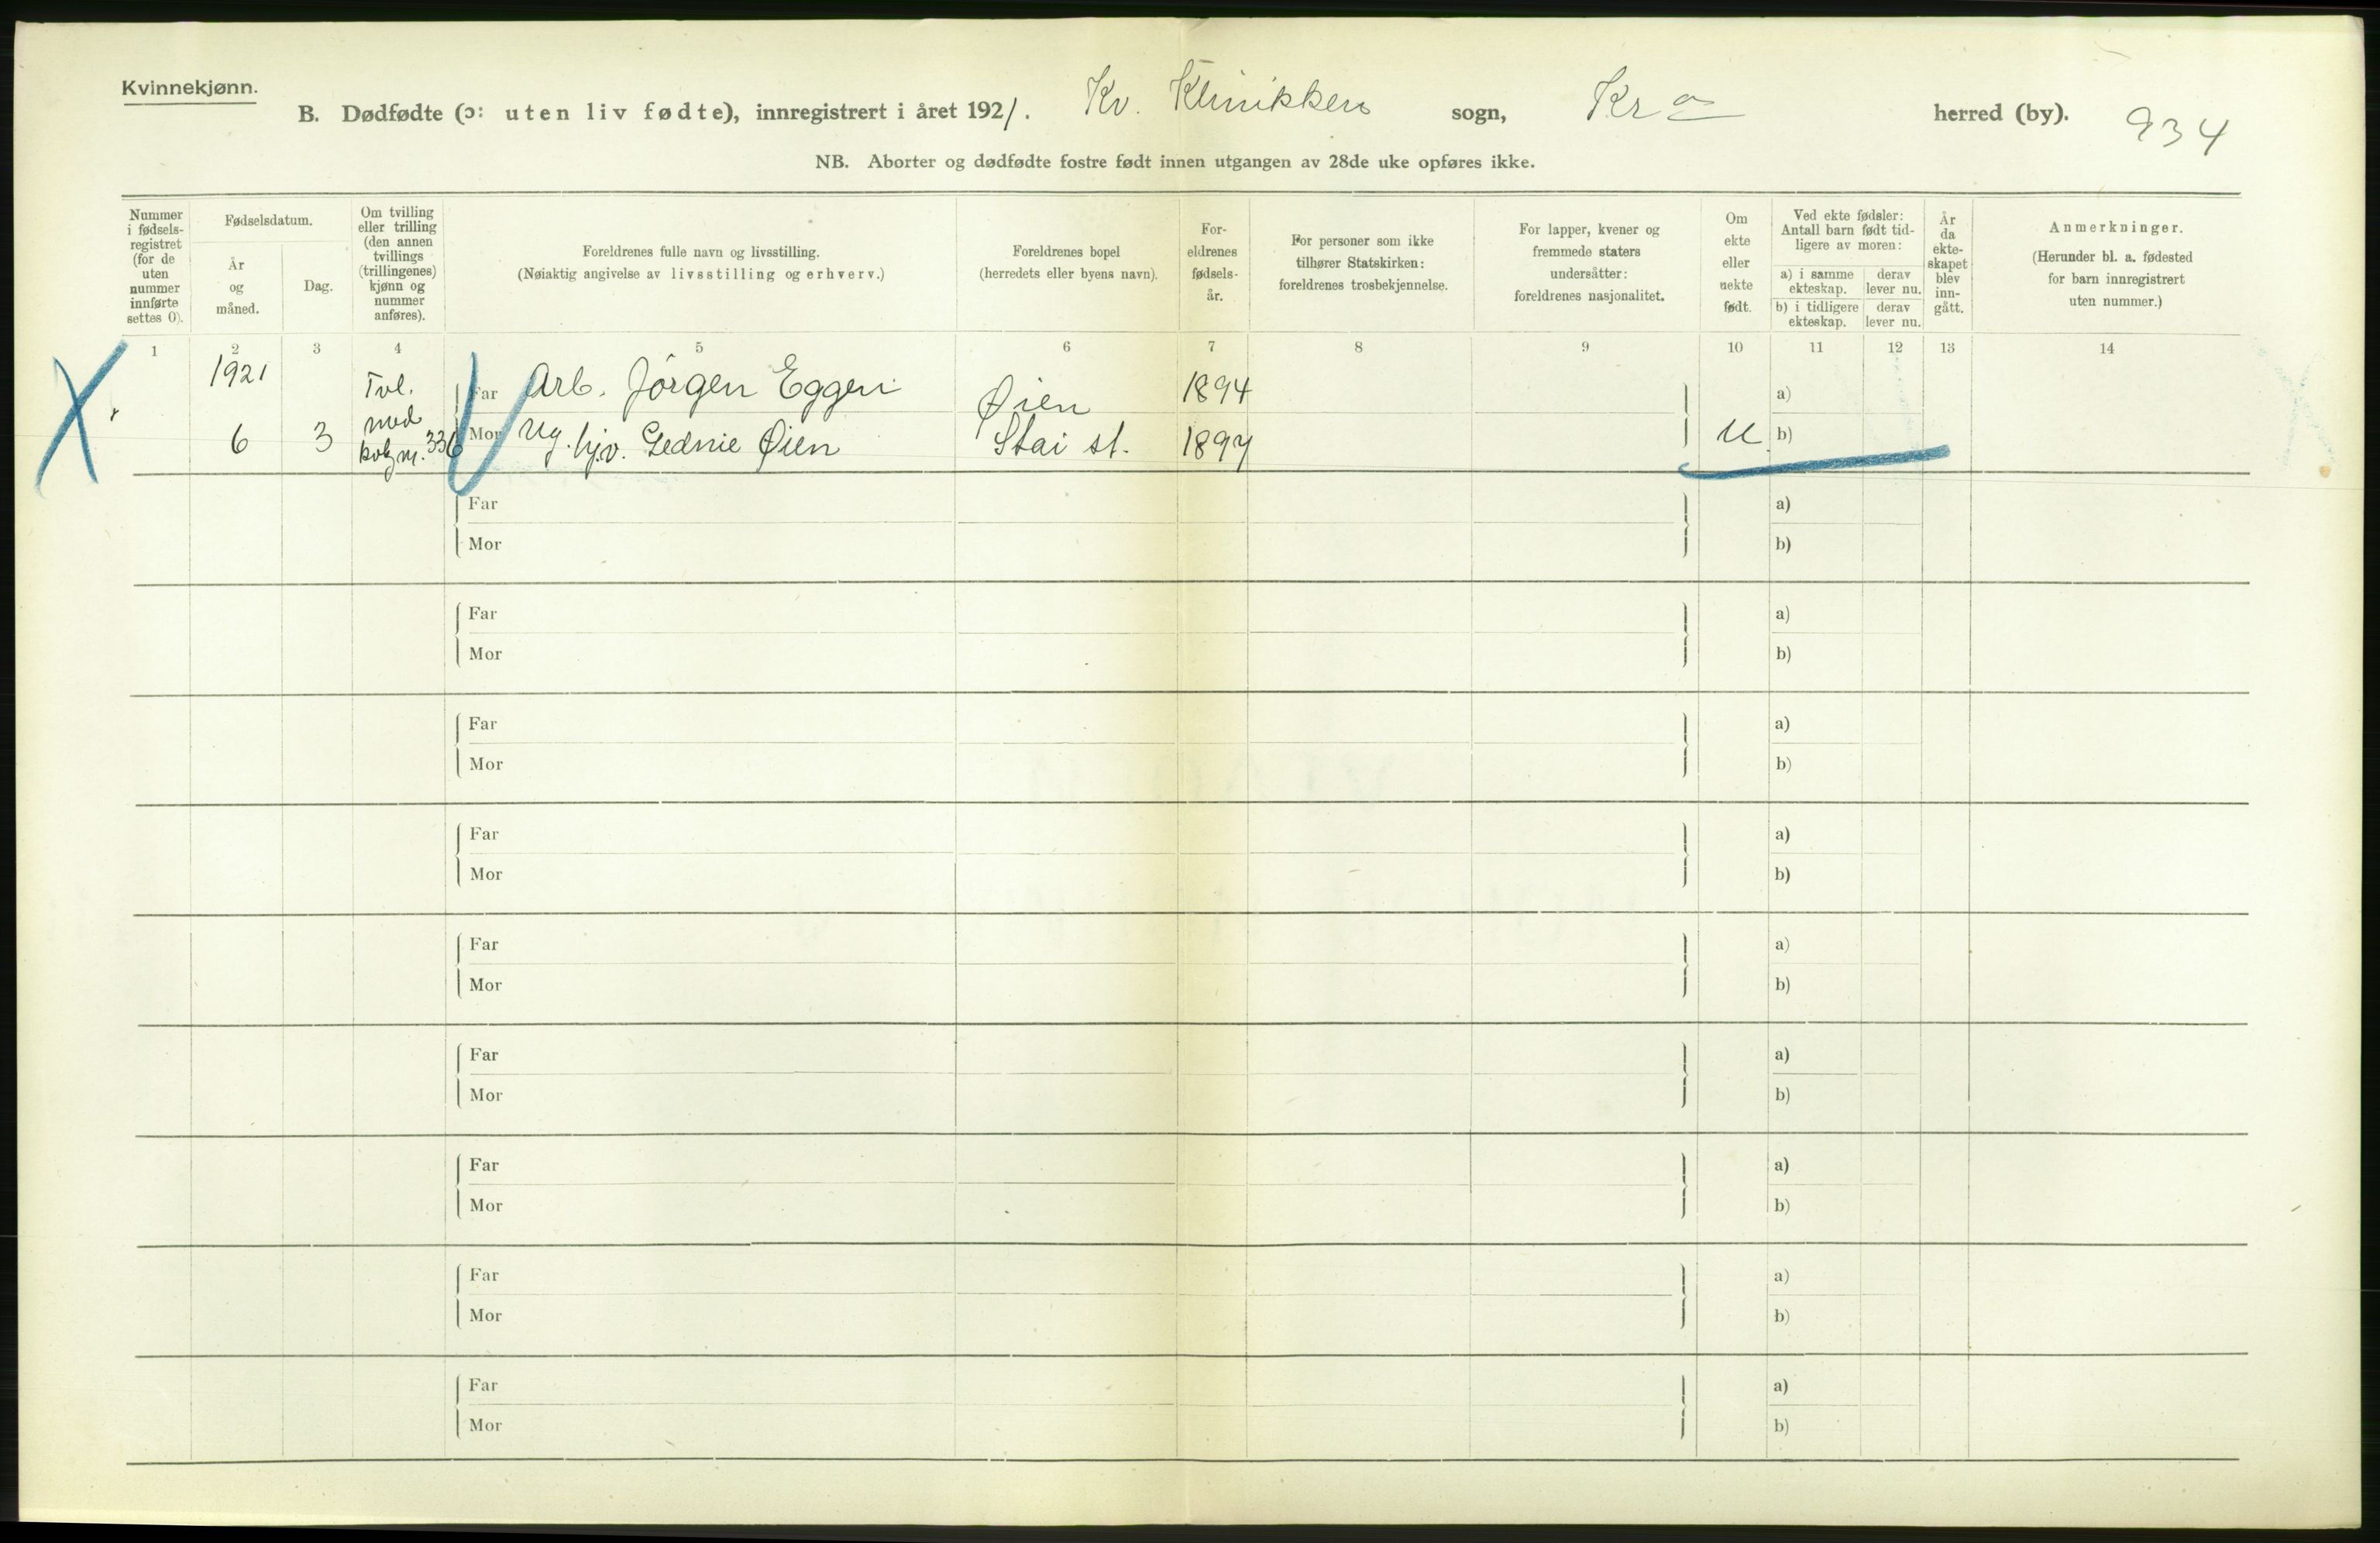 Kvinnekjønn.
B. Dødfødte (ɔ: uten liv fødte), innregistrert i året 1921. Kv. Klinikken sogn, Kra herred (by). 934
NB. Aborter og dødfødte fostre født innen utgangen av 28de uke opføres ikke.
Nummer i fødsels-registret (for de uten nummer innførte settes 0).
Fødselsdatum.
År og måned.
Dag.
Om tvilling eller trilling (den annen tvillings (trillingenes) kjønn og nummer anføres).
Foreldrenes fulle navn og livsstilling.
(Nøiaktig angivelse av livsstilling og erhverv.)
Foreldrenes bopel
(herredets eller byens navn).
For-eldrenes fødsels-år.
For personer som ikke tilhører Statskirken: foreldrenes trosbekjennelse.
For lapper, kvener og fremmede staters undersåtter: foreldrenes nasjonalitet.
Om ekte eller uekte født.
Ved ekte fødsler: Antall barn født tid-ligere av moren:
a) i samme ekteskap.
derav lever nu.
b) i tidligere ekteskap.
derav lever nu.
År da ekte-skapet blev inn-gått.
Anmerkninger.
(Herunder bl. a. fødested for barn innregistrert uten nummer.)
1 2 3 4 5 6 7 8 9 10 11 12 13 14
1921 Tvl. Far Arb. Jörgen Eggen Øien 1894 a)
med
6 3 336 Mor Ug. hj.v. Øien Stai st. 1897 U. b)
Far a)
Mor b)
Far a)
Mor b)
Far a)
Mor b)
Far a)
Mor b)
Far a)
Mor b)
Far a)
Mor b)
Far a)
Mor b)
Far a)
Mor b)
Far a)
Mor b)